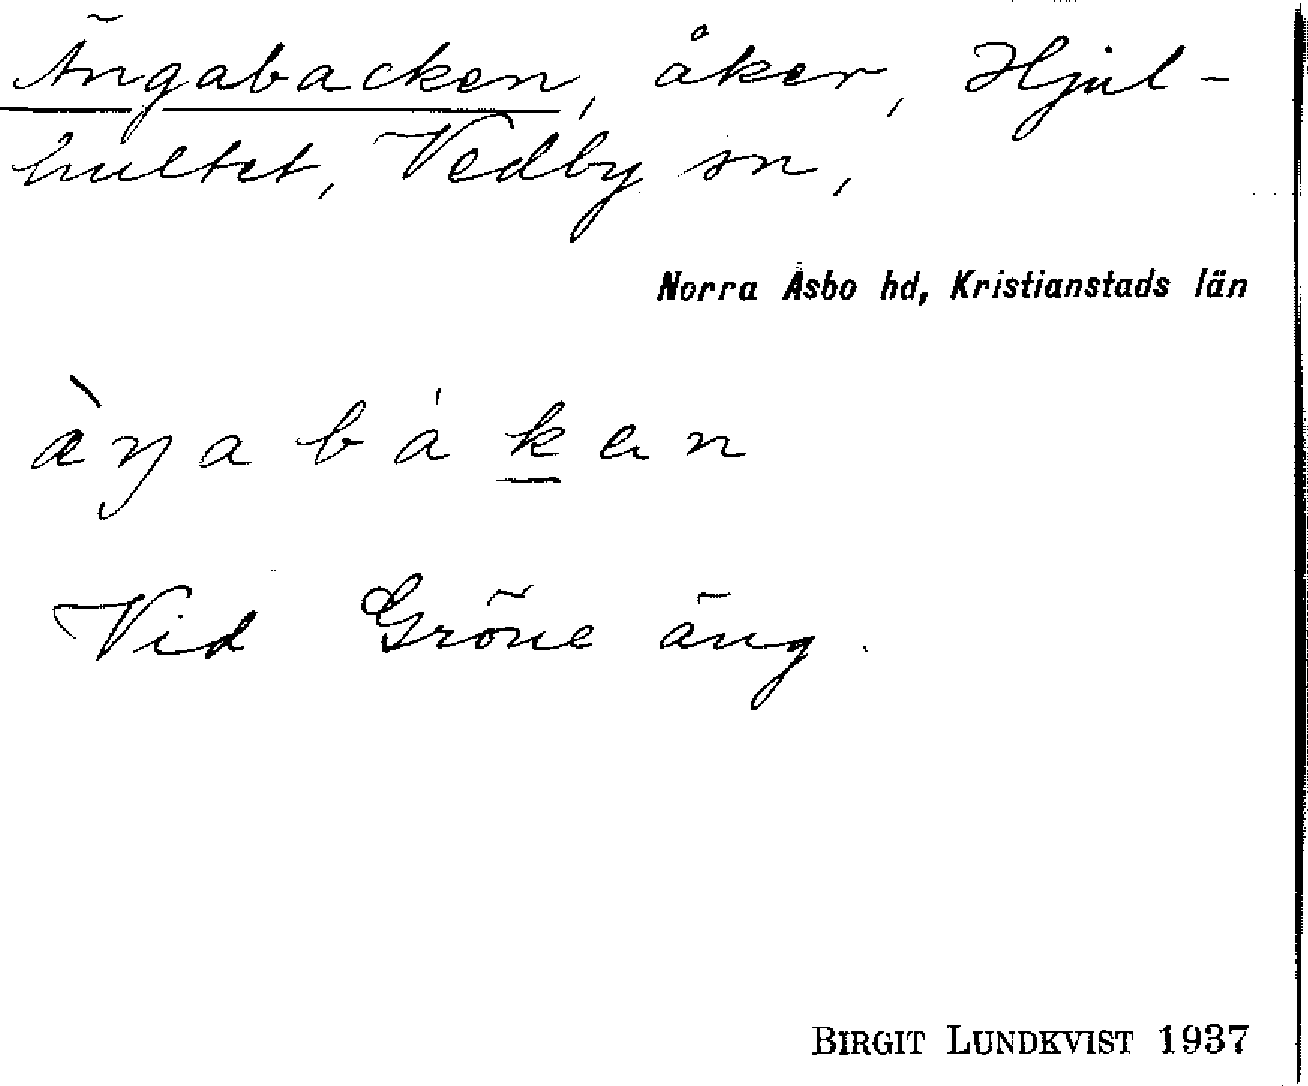 Ängabacken, åker, Hjul-
hultet, Vedby sn,
Norra Åsbo hd, Kristianstads län
àŋabákan
Vid Gröne äng.
BIRGIT LUNDKVIST 1937